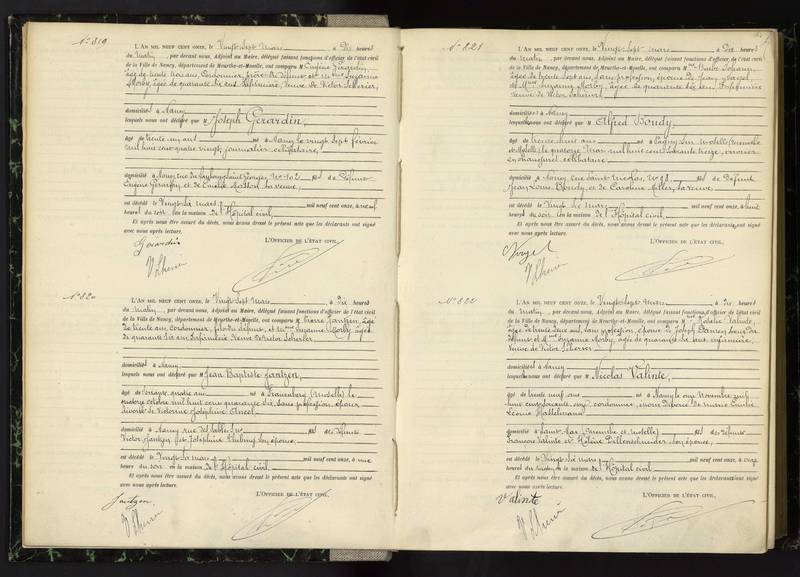 N° 819
L'AN MIL NEUF CENT ONZE, le Vingt-sept mars à Dix heures
du matin, par devant nous, Adjoint au Maire, délégué faisant fonctions d'officier de l'état civil
de la Ville de Nancy, département de Meurthe-et-Moselle, ont comparu M Eugène Gérardin,
âgé de trente trois ans, Cordonnier, frère du défunt et Mme Suzanne
Morby, âgée de quarante six ans, Infirmière, veuve de Victor Scherier,
domiciliés à Nancy
lesquels nous ont déclaré que M Joseph Gérardin
âgé de trente un ans né à Nancy le vingt sept février
mil huit cent quatre vingt, journalier, célibataire,
domicilié à Nancy, rue du Faubourg Saint Georges, N° 102 fils de Défunt
Eugène Gérardin, et de Emélie Mathon, sa veuve,
est décédé le Vingt-six mars mil neuf cent onze, à neuf
heures du soir en la maison de l'Hôpital civil,
Et après nous être assuré du décès, nous avons dressé le présent acte que les déclarants ont signé
avec nous après lecture.
L'OFFICIER DE L'ÉTAT CIVIL,
Gérardin
N° 820
L'AN MIL NEUF CENT ONZE, le Vingt-sept mars à Dix heures
du matin, par devant nous, Adjoint au Maire, délégué faisant fonctions d'officier de l'état civil
de la Ville de Nancy, département de Meurthe-et-Moselle, ont comparu M Pierre Jantzen, âgé
de trente ans, cordonnier, fils du défunt, et Mme Suzanne Morby, âgée
de quarante six ans, Infirmière, Veuve de Victor Scherier
domiciliés à Nancy
lesquels nous ont déclaré que M Jean Baptiste Jantzen,
âgé de soixante quatre ans né à Frauenberg (Moselle) le
quatorze octobre mil huit cent quarante six, sans profession, époux
divorcé de Victorine Joséphine Ancel,
domicilié à Nancy rue des Sables fils de défunts
Victor Jantzen et Joséphine son épouse,
est décédé le Vingt-six mars mil neuf cent onze, à une
heure du soir en la maison de l'Hôpital civil
Et après nous être assuré du décès, nous avons dressé le présent acte que les déclarants ont signé
avec nous après lecture.
L'OFFICIER DE L'ÉTAT CIVIL,
Jantzen
N° 821
L'AN MIL NEUF CENT ONZE, le Vingt-sept mars à Dix heures
du matin, par devant nous, Adjoint au Maire, délégué faisant fonctions d'officier de l'état civil
de la Ville de Nancy, département de Meurthe-et-Moselle, ont comparu Mme
âgée de trente sept ans, sans profession, épouse de Jean
et Mme Suzanne Morby, âgée de quarante six ans Infirmière
veuve de Victor Scherier
domiciliés à Nancy
lesquels nous ont déclaré que M Alfred Boudy,
âgé de trente huit ans né à Pagny sur Moselle (Meurthe
et Moselle) le quatorze mars mil huit cent soixante treize, ouvrier
célibataire
domicilié à Nancy, rue Saint Nicolas, N° 98 fils de Défunt
Jean Louis Boudy, et de Caroline Miller, sa veuve
est décédé le Vingt-six mars mil neuf cent onze, à huit
heures du soir en la maison de l'Hôpital civil,
Et après nous être assuré du décès, nous avons dressé le présent acte que les déclarants ont signé
avec nous après lecture.
L'OFFICIER DE L'ÉTAT CIVIL,
N° 822
L'AN MIL NEUF CENT ONZE, le Vingt-sept mars à Dix heures
du matin, par devant nous, Adjoint au Maire, délégué faisant fonctions d'officier de l'état civil
de la Ville de Nancy, département de Meurthe-et-Moselle, ont comparu Mme Valinte,
âgée de trente deux ans, sans profession, épouse de Joseph sœur du
défunt et Mme Suzanne Morby, âgée de quarante six ans, infirmière,
veuve de Victor Scherier
domiciliés à Nancy
lesquels nous ont déclaré que M Nicolas Valinte,
âgé de trente neuf ans né à Nancy le onze Novembre mil
huit cent soixante onze, cordonnier, époux divorcé de Marie Emilie
Léonie Hasselmann
domicilié à Saint Max (Meurthe et Moselle) fils de défunts
François Valinte et Hélène Dillenschneider son épouse,
est décédé le Vingt-six mars mil neuf cent onze, à onze
heures du matin, en la maison de l'Hôpital civil,
Et après nous être assuré du décès, nous avons dressé le présent acte que les déclarants ont signé
avec nous après lecture.
L'OFFICIER DE L'ÉTAT CIVIL,
Valinte